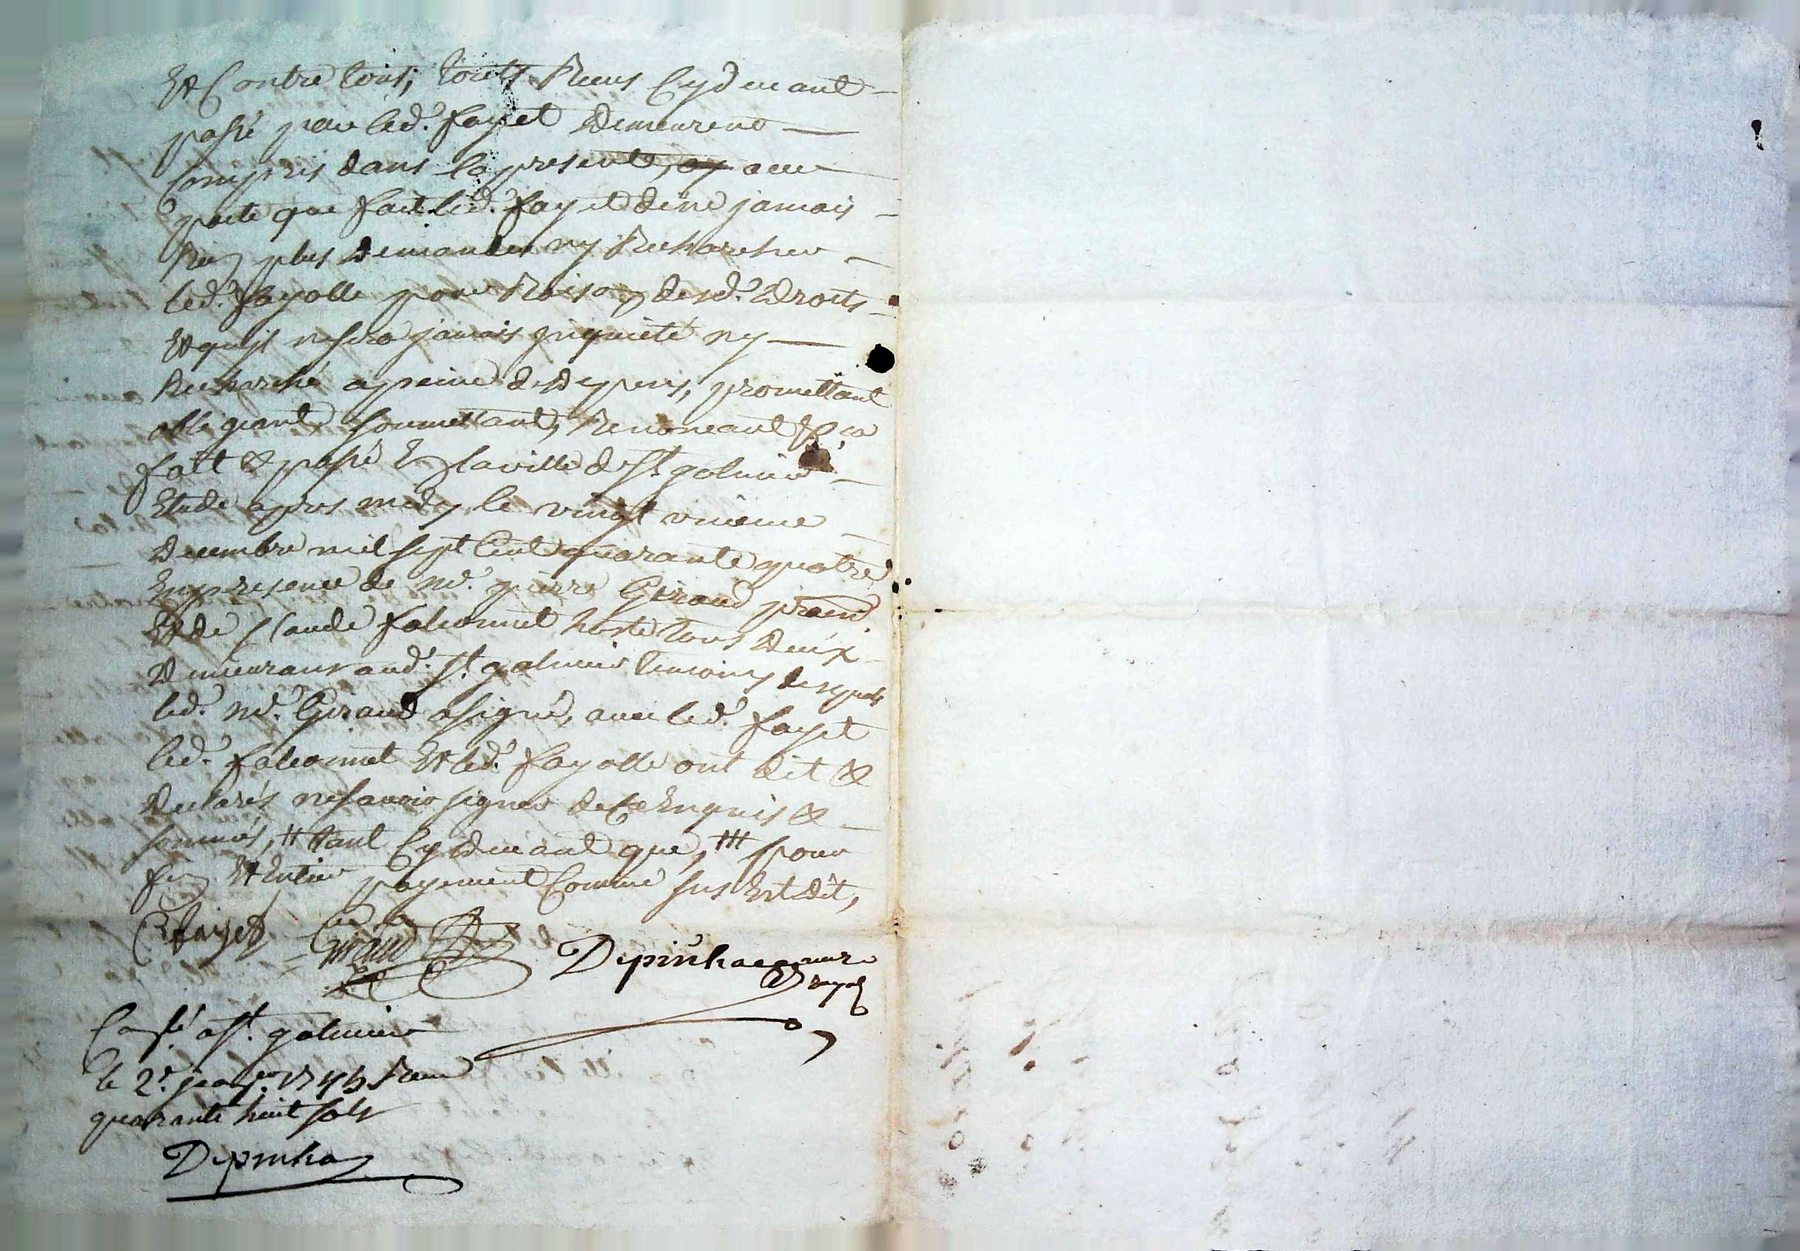 Et Contre tous, touts Reeus Cydevant
passé par led.t fayet Demeurent
Compris dans la presente, avec
pacte que fait led.t fayet de ne jamais
Rien plus Demander ny Rechercher
led.t fayolle pour Raison desd.t Droits
Et qu'il n'y sera jamais inquieté ny
Recherché a peine de Depens, promettant
obligeant, soumettant, Renonceant &ca
fait & passé En la ville de St galmier
Etude apres midy le vingt unieme
Decembre mil sept cent quarante quatre
En presence de me. pierre Giraud
Et de Claude falconnet hoste tous deux
Demeurant aud.t St galmier temoins desquels
led.t me. Giraud a signé, avec led.t fayet
led.t falconnet Et led.t fayolle ont dit &
Declarés ne savoir signer de Ce Enquis &
sommés, # tant Cydevant que, ### pour
fin Et Entier payement Comme sus Est dit,
fayet Giraud Depinhac nore
Royal
a St. galmier
le 2e. janer. 1745 Receu
quarante huit sols
Depinhac